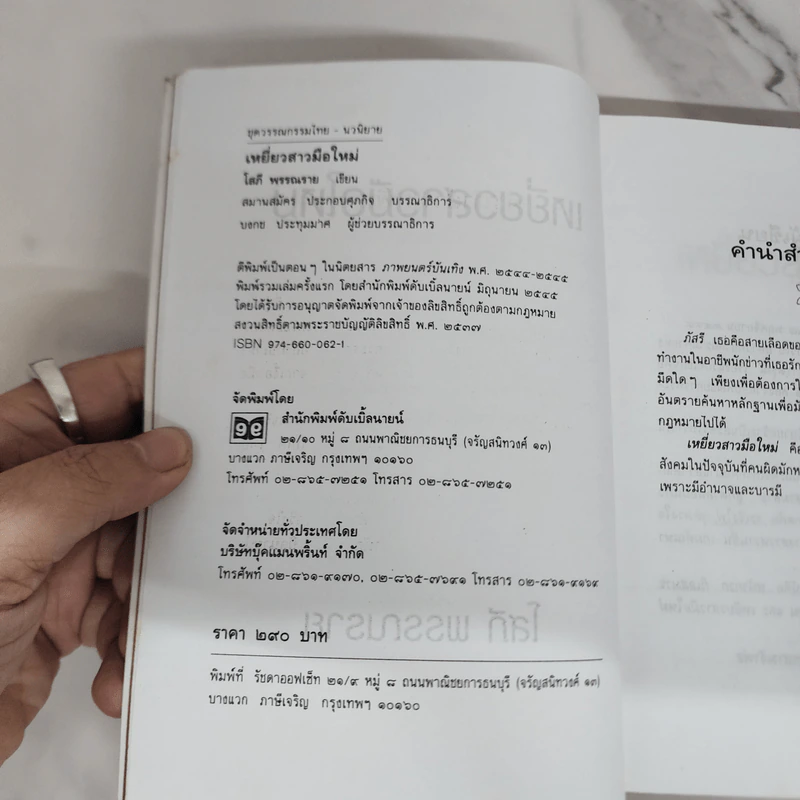 ชุดวรรณกรรมไทย - นวนิยาย
เหยี่ยวสาวมือใหม่
โสภี พรรณราย เขียน
สมานสมัคร ประกอบศุภกิจ บรรณาธิการ
บงกช ประทุมมาศ ผู้ช่วยบรรณาธิการ
ตีพิมพ์เป็นตอนๆ ในนิตยสาร ภาพยนตร์บันเทิง พ.ศ. ๒๕๔๔-๒๕๔๕
พิมพ์รวมเล่มครั้งแรก โดยสำนักพิมพ์ดับเบิ้ลนายน์ มิถุนายน ๒๕๔๕
โดยได้รับการอนุญาตจัดพิมพ์จากเจ้าของลิขสิทธิ์ถูกต้องตามกฎหมาย
สงวนสิทธิ์ตามพระราชบัญญัติลิขสิทธิ์ พ.ศ. ๒๕๓๗
ISBN 974-660-062-1
จัดพิมพ์โดย
สำนักพิมพ์ดับเบิ้ลนายน์
๒๑/๑๐ หมู่ ๘ ถนนพาณิชยการธนบุรี (จรัญสนิทวงศ์ ๑๓)
บางแวก ภาษีเจริญ กรุงเทพฯ ๑๐๑๖๐
โทรศัพท์ ๐๒-๘๖๕-๗๒๕๑ โทรสาร ๐๒-๘๖๕-๗๒๕๑
จัดจำหน่ายทั่วประเทศโดย
บริษัทบุ๊คแมนพริ้นท์ จำกัด
โทรศัพท์ ๐๒-๘๖๑-๙๑๗๐, ๐๒-๘๖๕-๗๖๙๑ โทรสาร ๐๒-๘๖๑-๙๑๖๙
ราคา ๒๙๐ บาท
พิมพ์ที่ รัชดาออฟเซ็ท ๒๑/๙ หมู่ ๘ ถนนพาณิชยการธนบุรี (จรัญสนิทวงศ์ ๑๓)
บางแวก ภาษีเจริญ กรุงเทพฯ ๑๐๑๖๐
คำนำสำ
ภัสรี เธอคือสายเลือดขอ
ทำงานในอาชีพนักข่าวที่เธอรัก
มืดใดๆ เพียงเพื่อต้องการใ
อันตรายค้นหาหลักฐานเพื่อมั
กฎหมายไปได้
เหยี่ยวสาวมือใหม่ คือ
สังคมในปัจจุบันที่คนผิดมักห
เพราะมีอำนาจและบารมี